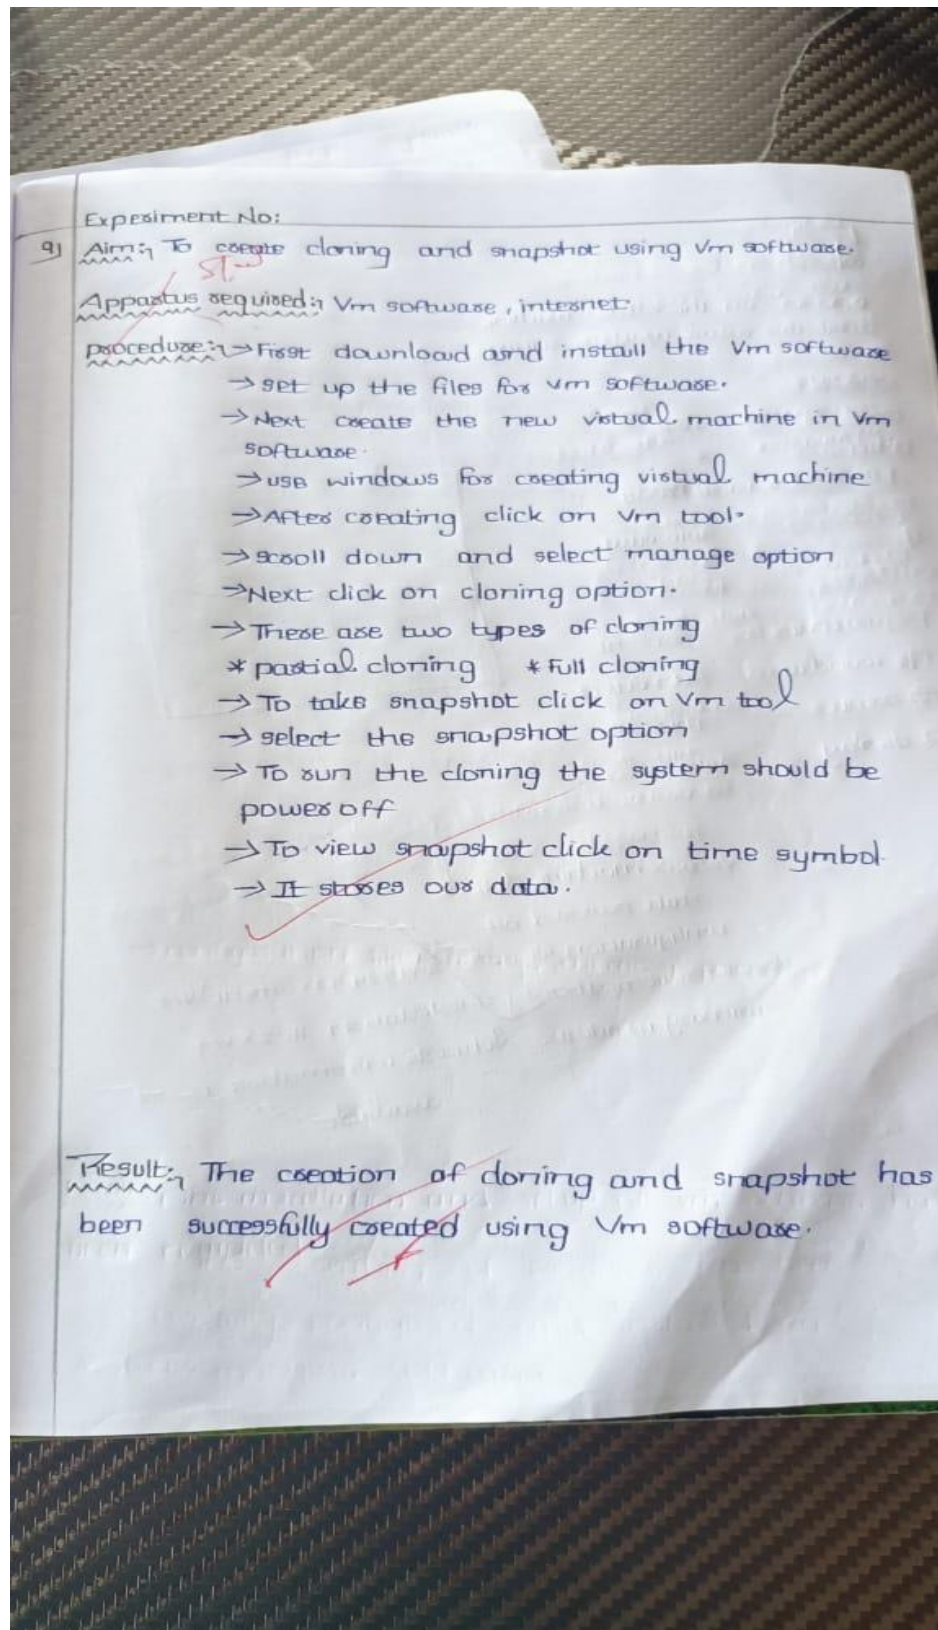 Experiment No:
9) Aim:- To create cloning and snapshot using Vm software.
Appartus required:- Vm software, internet.
procedure:- → First download and install the Vm software
→ set up the files for vm software.
→ Next create the new virtual machine in Vm
software.
→ use windows for creating virtual machine
→ After creating click on Vm tool.
→ scroll down and select manage option
→ Next click on cloning option.
→ There are two types of cloning
* partial cloning * Full cloning
→ To take snapshot click on Vm tool
→ select the snapshot option
→ To run the cloning the system should be
power off
→ To view snapshot click on time symbol.
→ It stores our data.
Result:- The creation of cloning and snapshot has
been successfully created using Vm software.